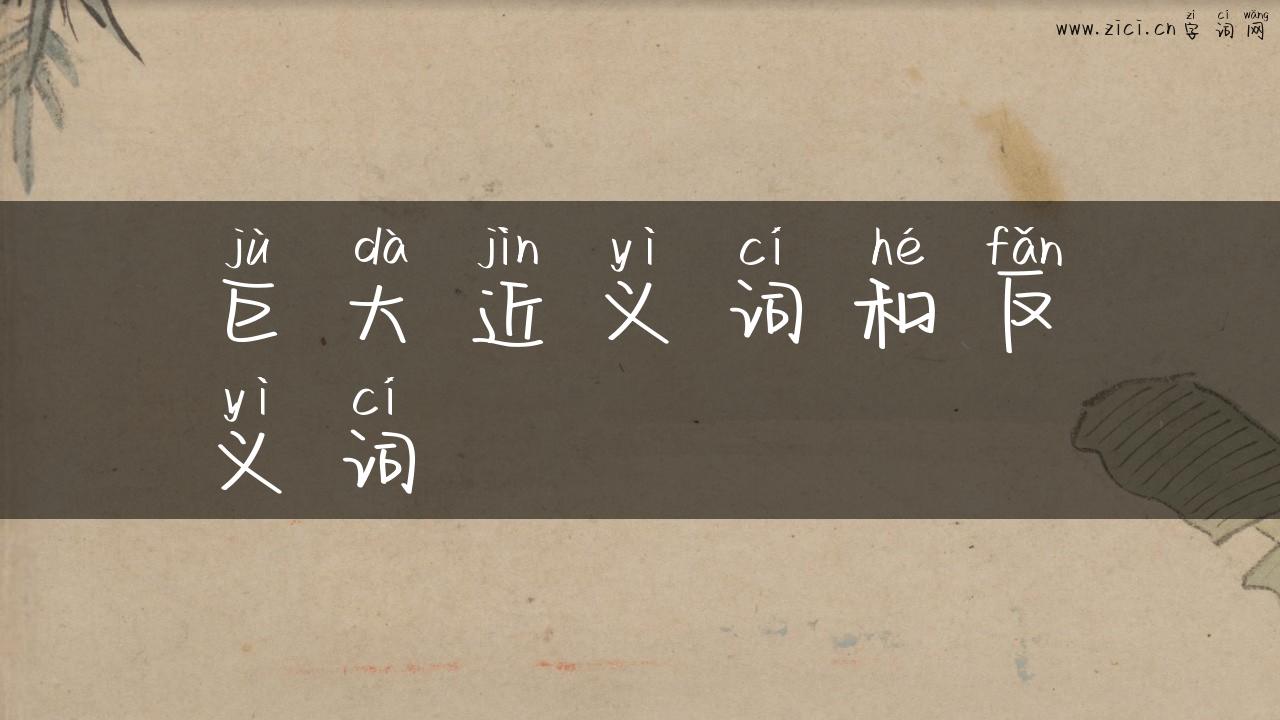 zì cí wǎng
www.zici.cn 字词网
jù dà jìn yì cí hé fǎn
巨大近义词和反
yì cí
义词